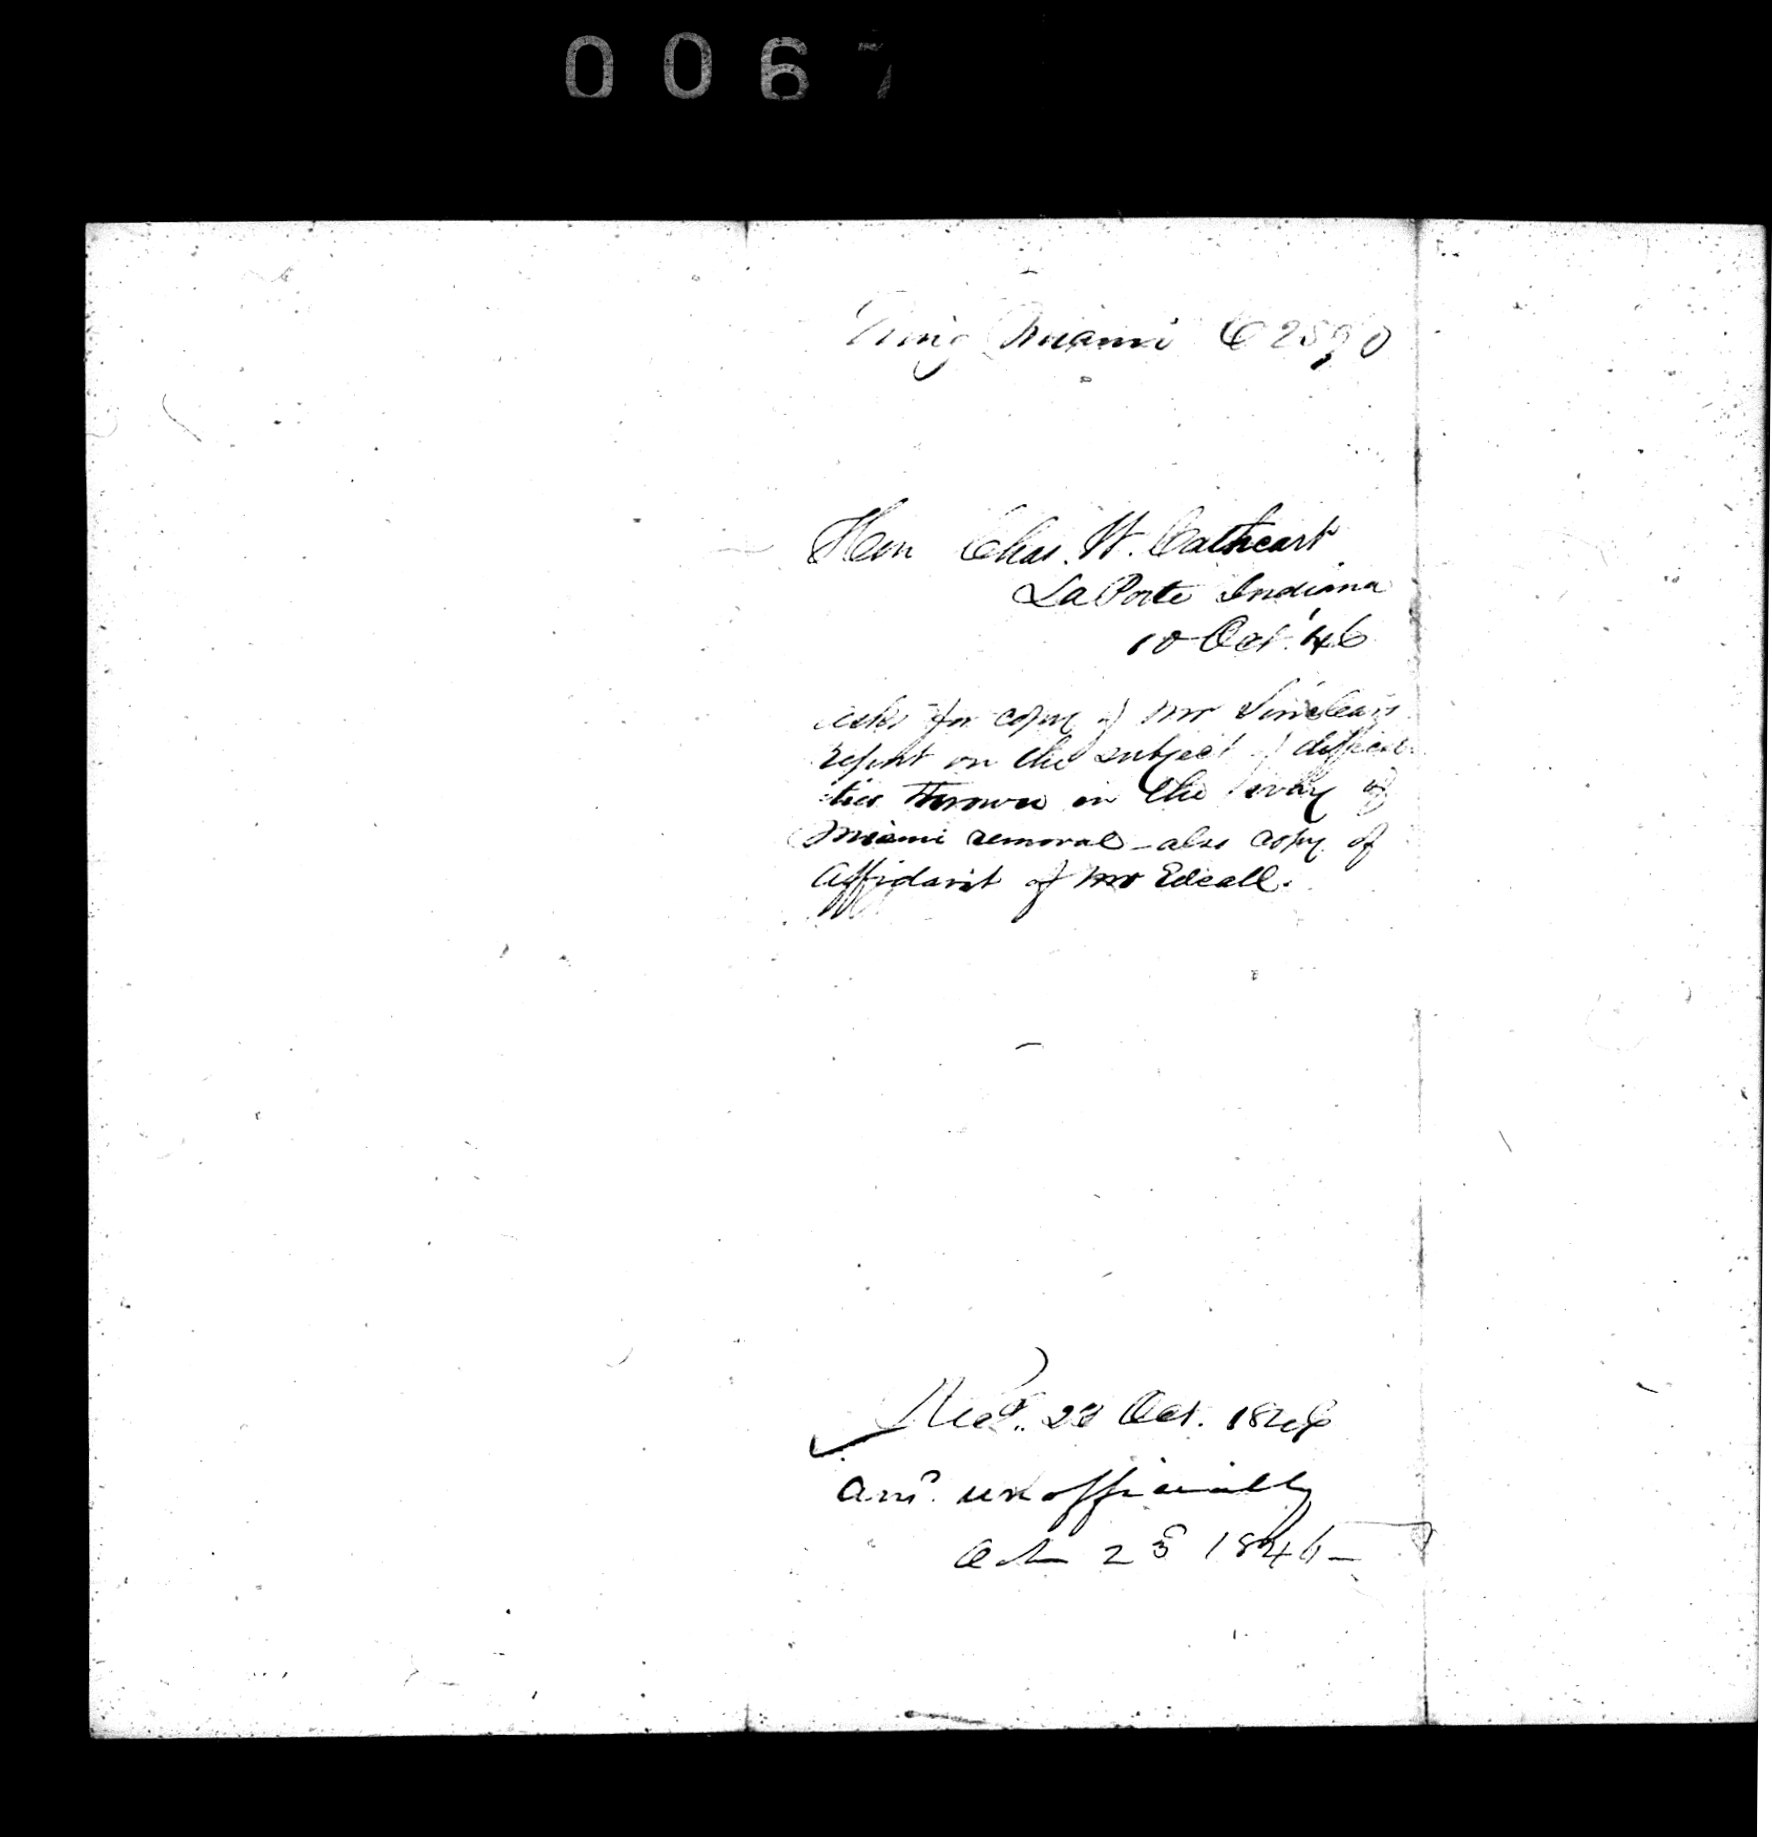 0067
Emig Miami C2590
Hon Chas. W. Cathcart
La Porte Indiana
10 Oct. '46
asks for copy of Mr Sinclear's
report on the subject of difficul-
ties thrown in the way of
Miami removal - also copy of
Affidavit of Mr Edsall.
Recd. 23 Oct. 1846
Ansd. unofficially
Oct 23 1846 -